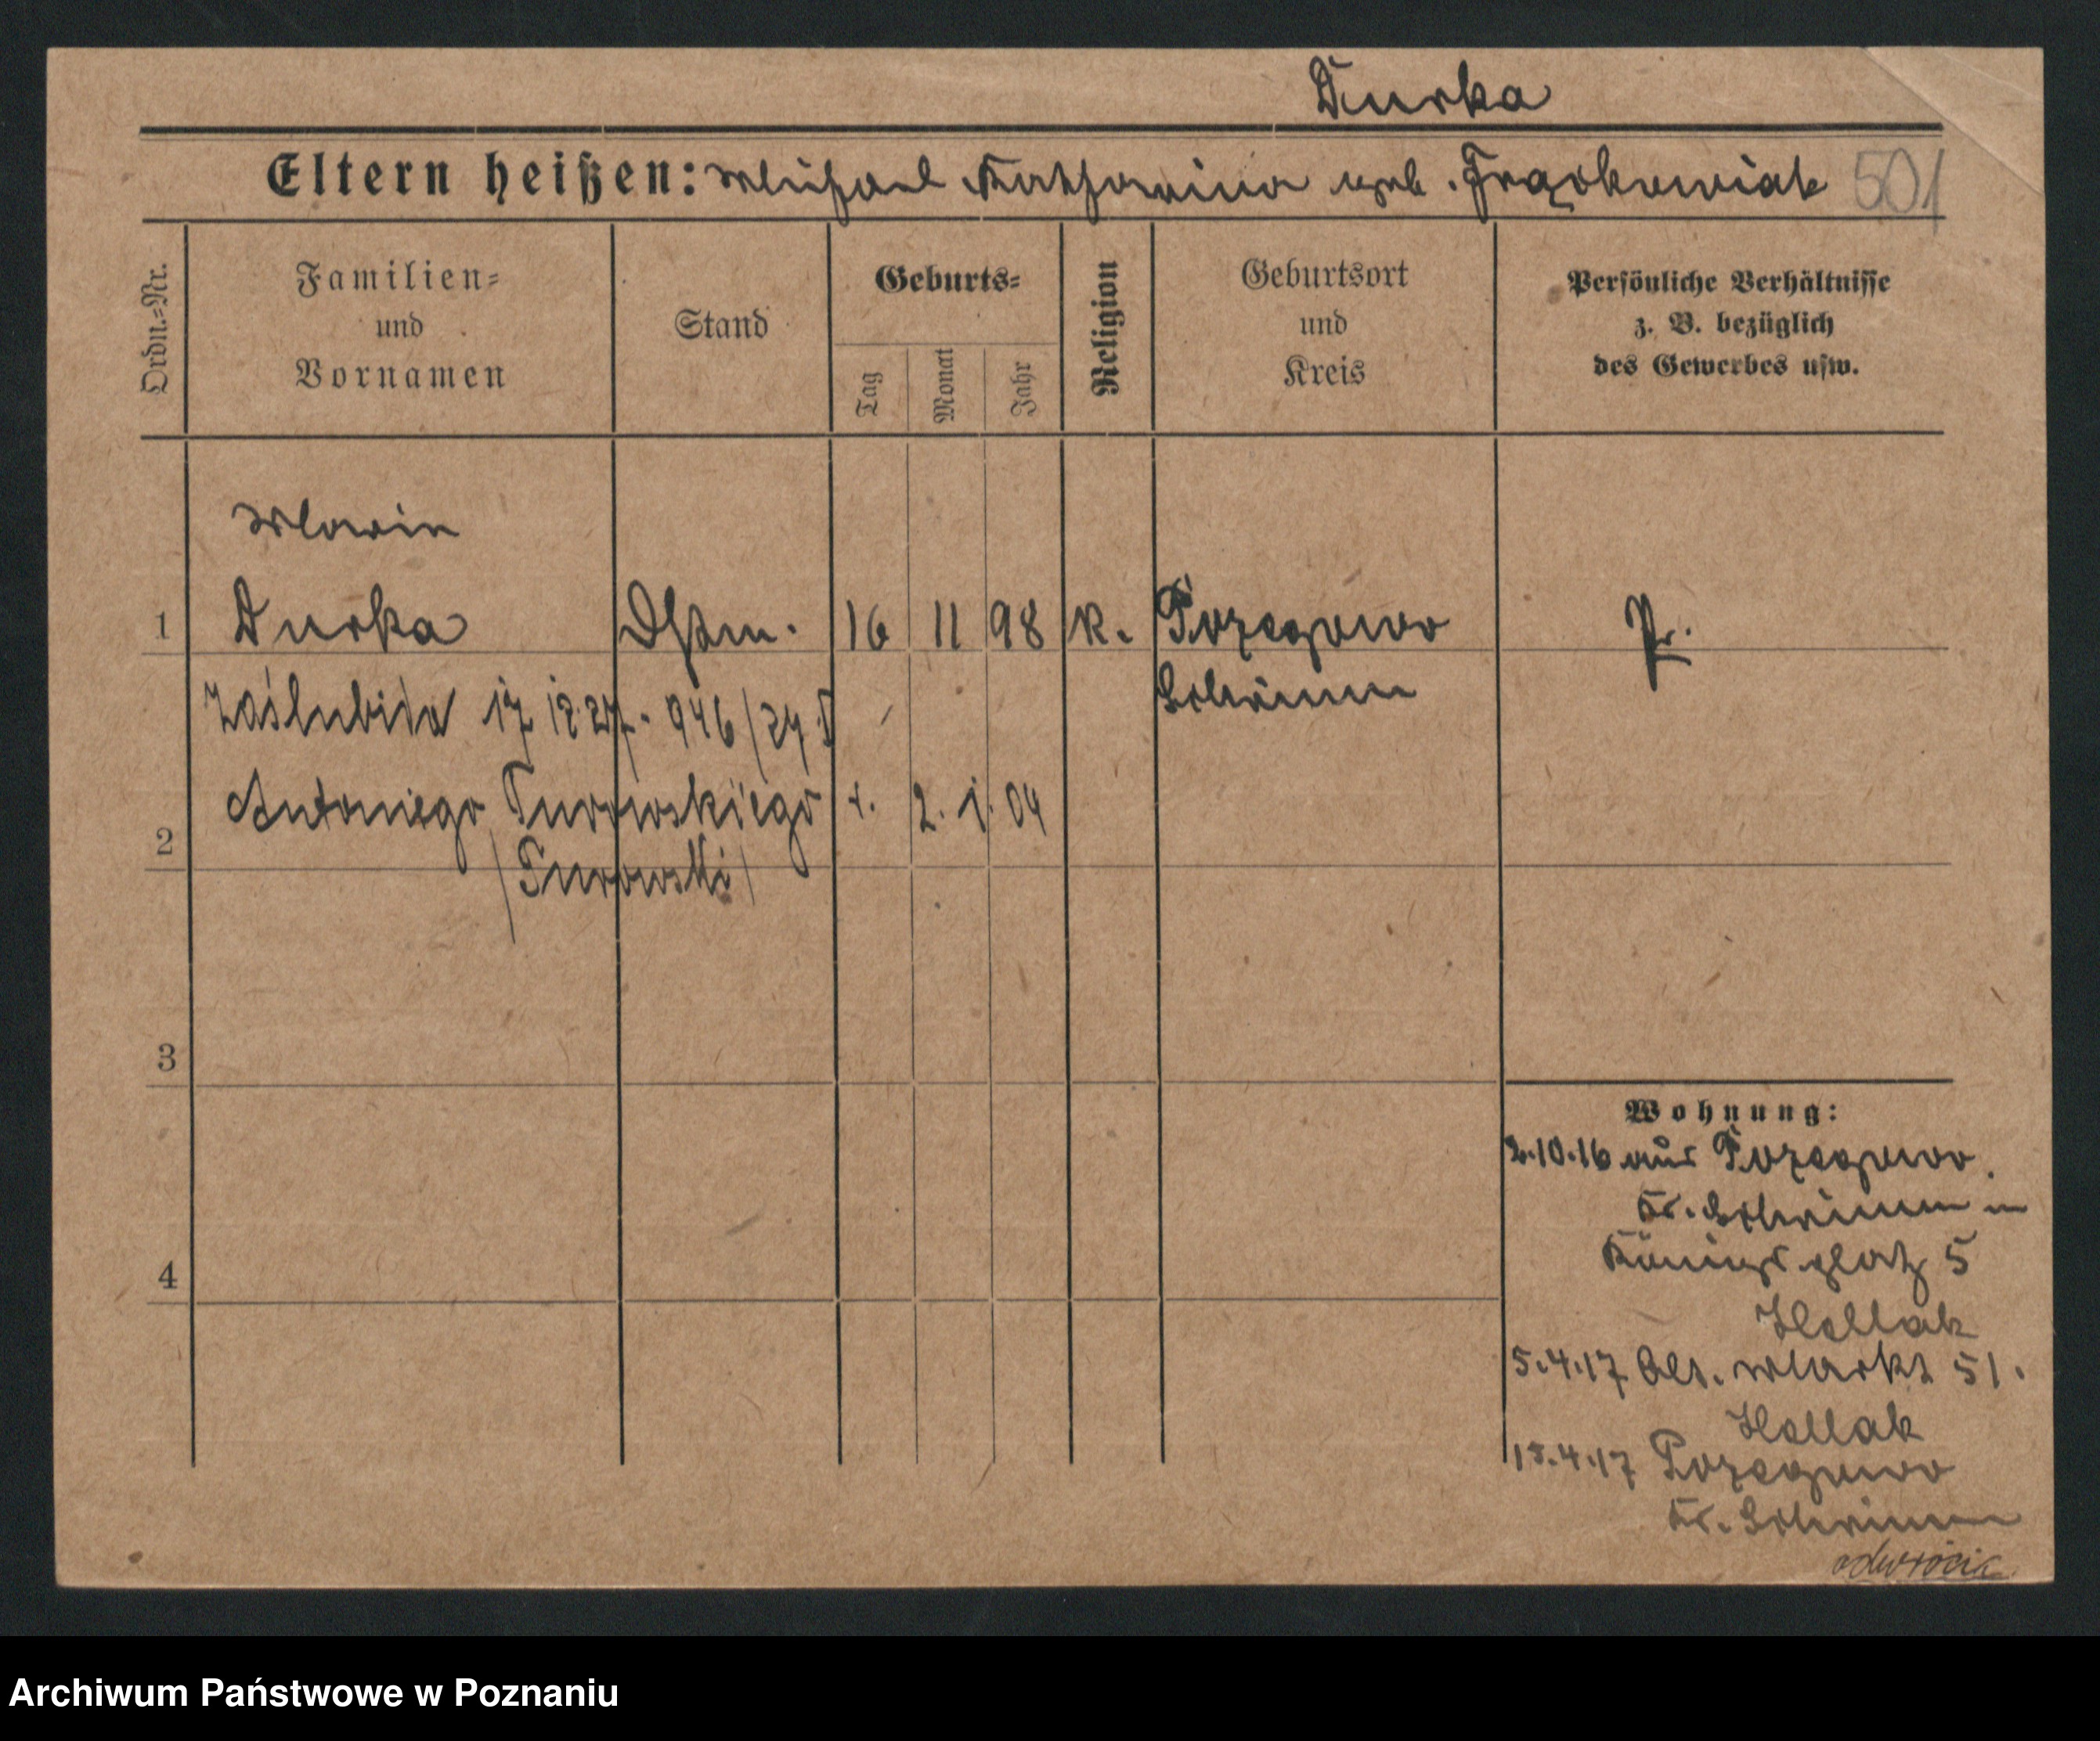 Durka
Eltern heißen: Michael Katharina geb. Frąckowiak 501
Ordn.=Nr.
Familien=
und
Vornamen
Stand
Geburts=
Tag
Monat
Jahr
Religion
Geburtsort
und
Kreis
Persönliche Verhältnisse
z. B. bezüglich
des Gewerbes usw.
Marie
1 Durka Dstm. 16 11 98 k. Pożegowo Pr.
Schrimm
zaślubiła 17 12 27. 946/27
Antoniego Turowskiego r. 2. 1. 04
2
/Turowski/
3
Wohnung:
2.10.16 aus Pożegowo.
Kr. Schrimm in
Königsplatz 5
4
Hellak
5.4.17 Alt. Markt 51.
Hellak
15.4.17 Pożegowo
Kr. Schrimm
odwrócić
Archiwum Państwowe w Poznaniu